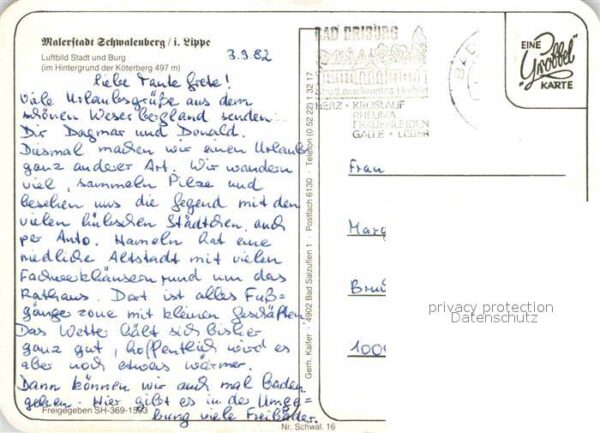 Malerstadt Schwalenberg / i. Lippe
Luftbild Stadt und Burg
(im Hintergrund der Köterberg 497 m)
3.9.82
Liebe Tante Grete!
Viele Urlaubsgrüße aus dem
schönen Weserbergland senden
Dir Dagmar und Donald.
Diesmal machen wir einen Urlaub
ganz anderer Art. Wir wandern
viel, sammeln Pilze und
besehen uns die Gegend mit den
vielen hübschen Städtchen, auch
per Auto. Hameln hat eine
niedliche Altstadt mit vielen
Fachwerkhäusern rund um das
Rathaus. Dort ist alles Fuß=
gängerzone mit kleinen Geschäften.
Das Wetter hält sich bisher
ganz gut, hoffentlich wird es
aber noch etwas wärmer.
Dann können wir auch mal baden
gehen. Hier gibt es in der Umge=
bung viele Freibäder.
Freigegeben SH-369-1593
Nr. Schwal. 16
Gerh. Kaifer · 4902 Bad Salzuflen 1 · Postfach 6130 · Telefon (0 52 22) 1 32 17
BAD DRIBURG
HERZ · KREISLAUF
RHEUMA
FRAUENLEIDEN
GALLE · LEBER
BAD
EINE
"Gröbbel"
KARTE
Frau
Marg
Bru
100
privacy protection
Datenschutz